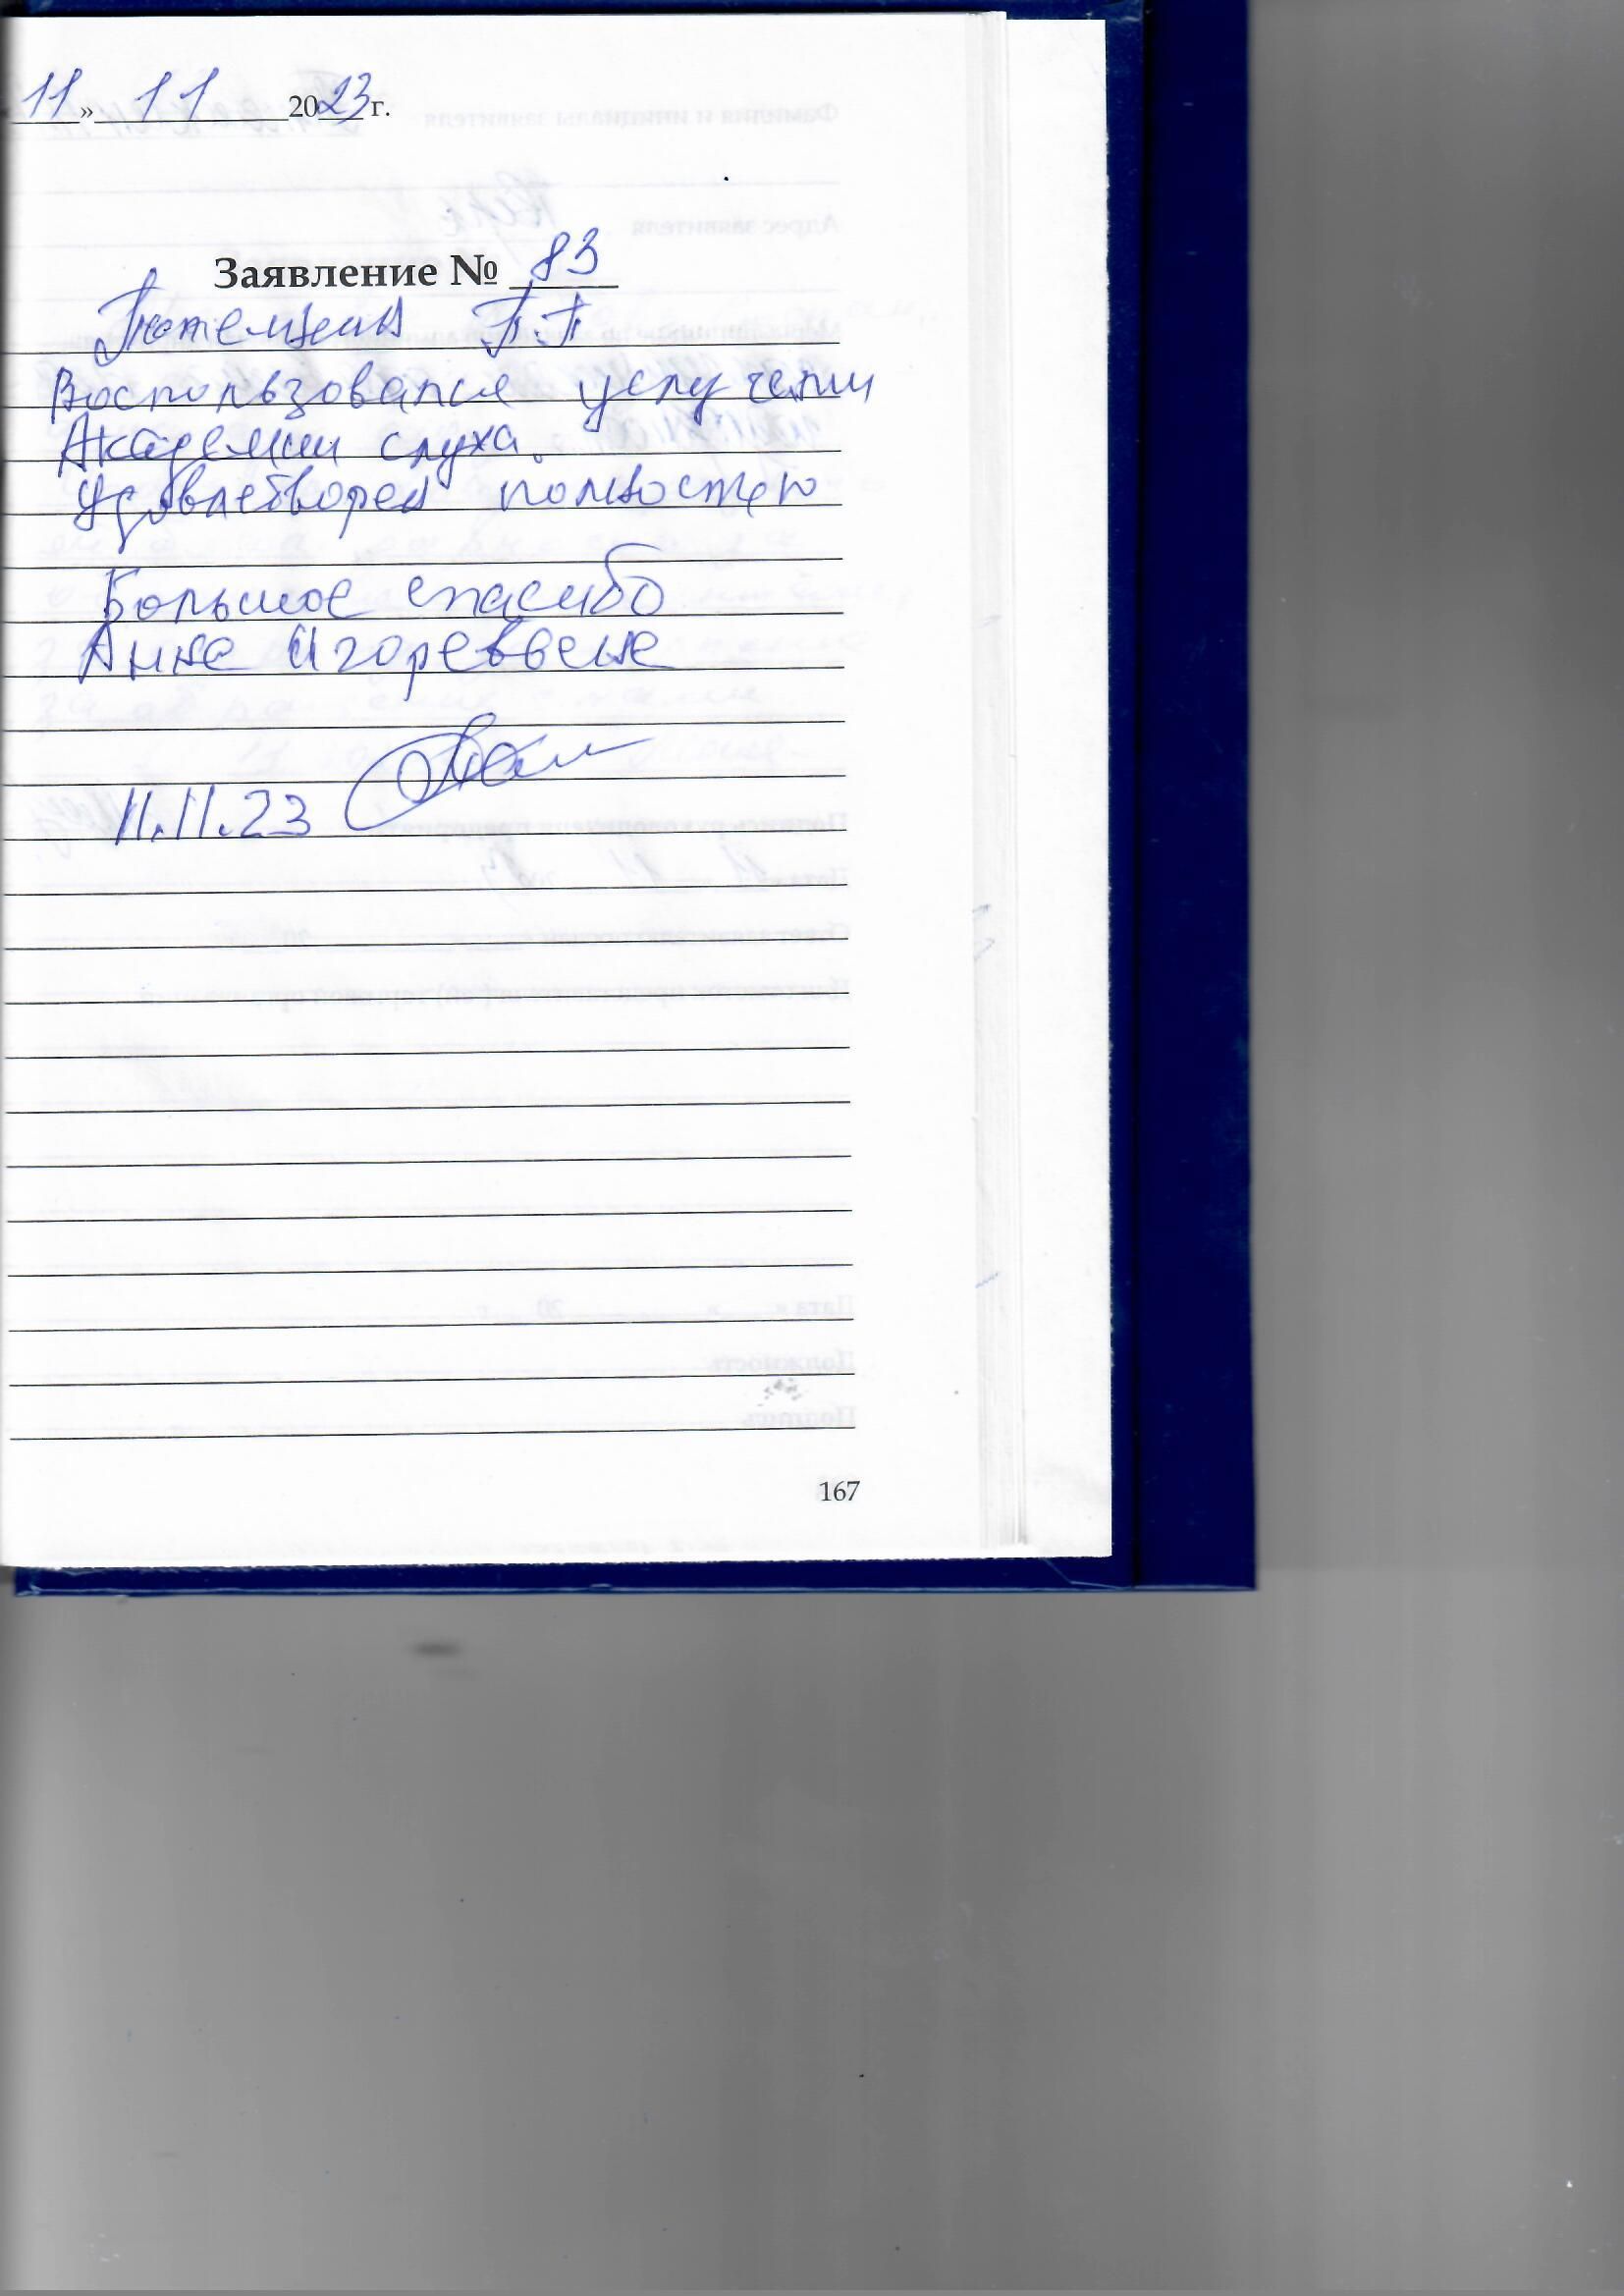 11 » 11 2023 г.
Заявление № 83
П.П
Воспользовался услугами
Академии слуха.
Удовлетворен полностью
Большое спасибо
Анне Игореввене
11.11.23
167